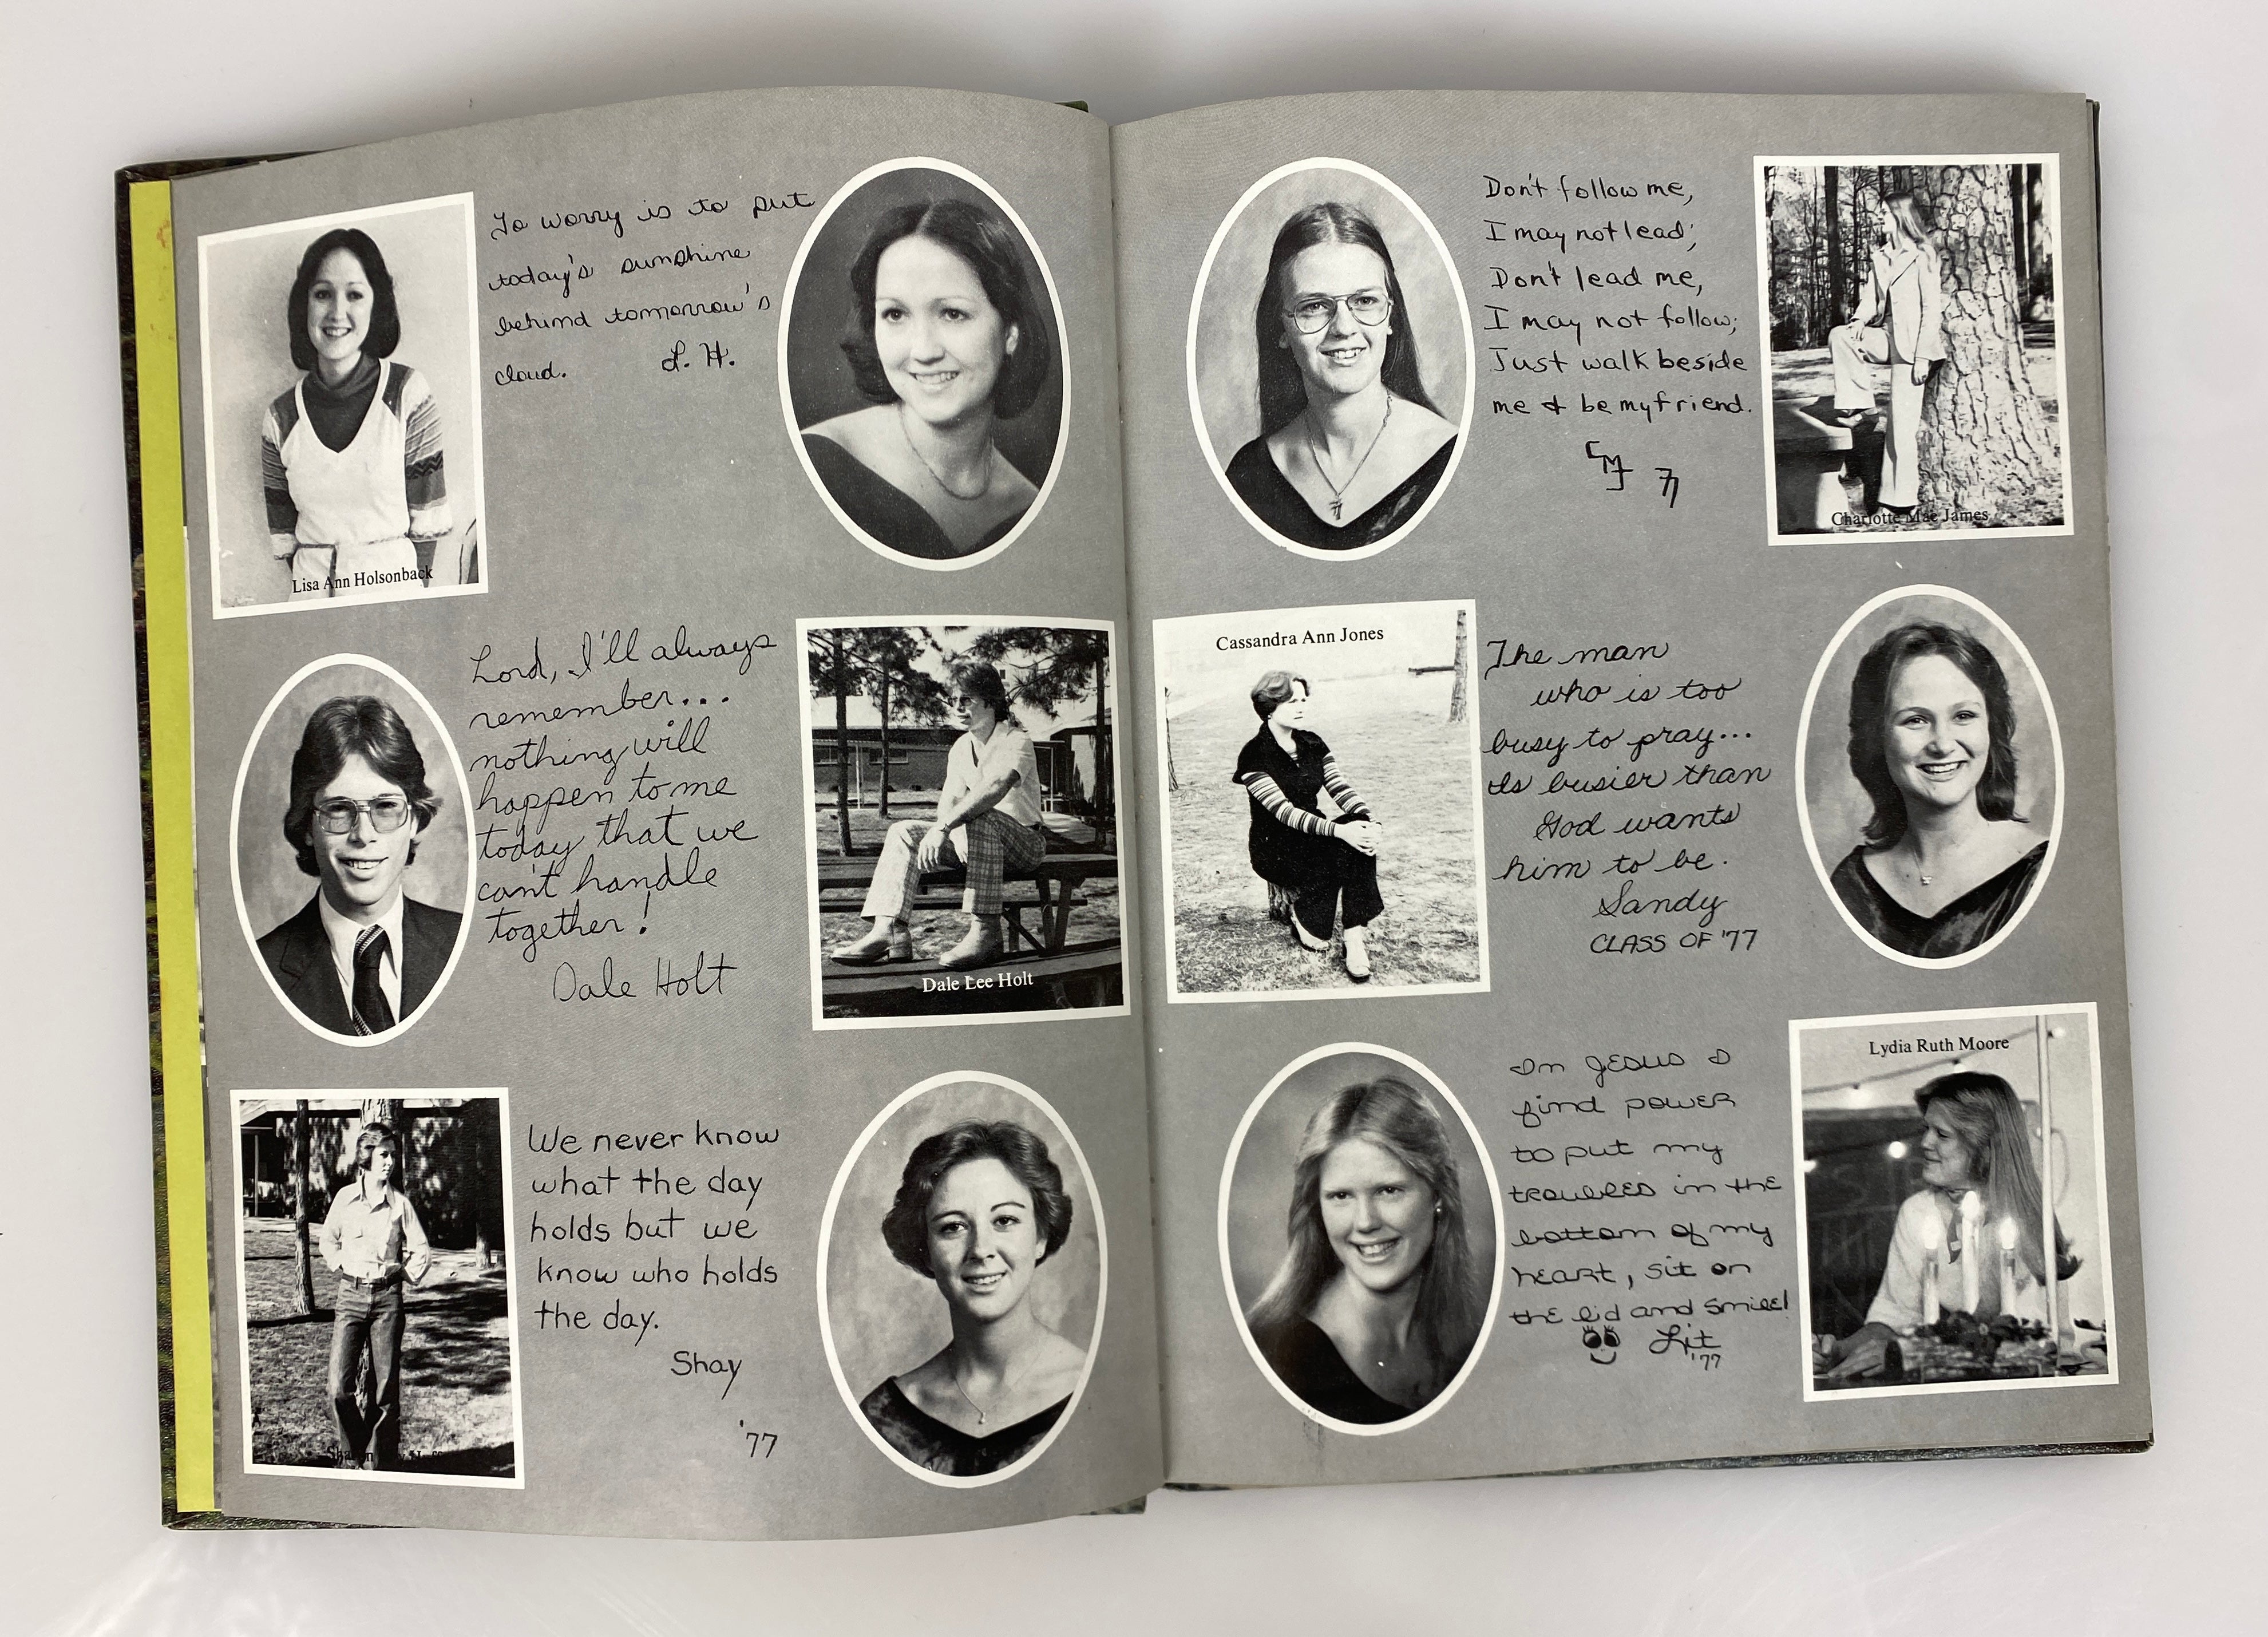 To worry is to put
today's sunshine
behind tomorrow's
cloud. L. H.
Lisa Ann Holsonback
Lord, I'll always
remember...
nothing will
happen to me
today that we
can't handle
together!
Dale Holt
Dale Lee Holt
We never know
what the day
holds but we
know who holds
the day.
Shay
'77
Don't follow me,
I may not lead;
Don't lead me,
I may not follow;
Just walk beside
me & be my friend.
CMJ 77
Charlotte Mae James
Cassandra Ann Jones
The man
who is too
busy to pray...
Is busier than
God wants
him to be.
Sandy
CLASS OF '77
In JESUS I
find power
to put my
troubles in the
bottom of my
heart, sit on
the lid and smile!
Lit
'77
Lydia Ruth Moore